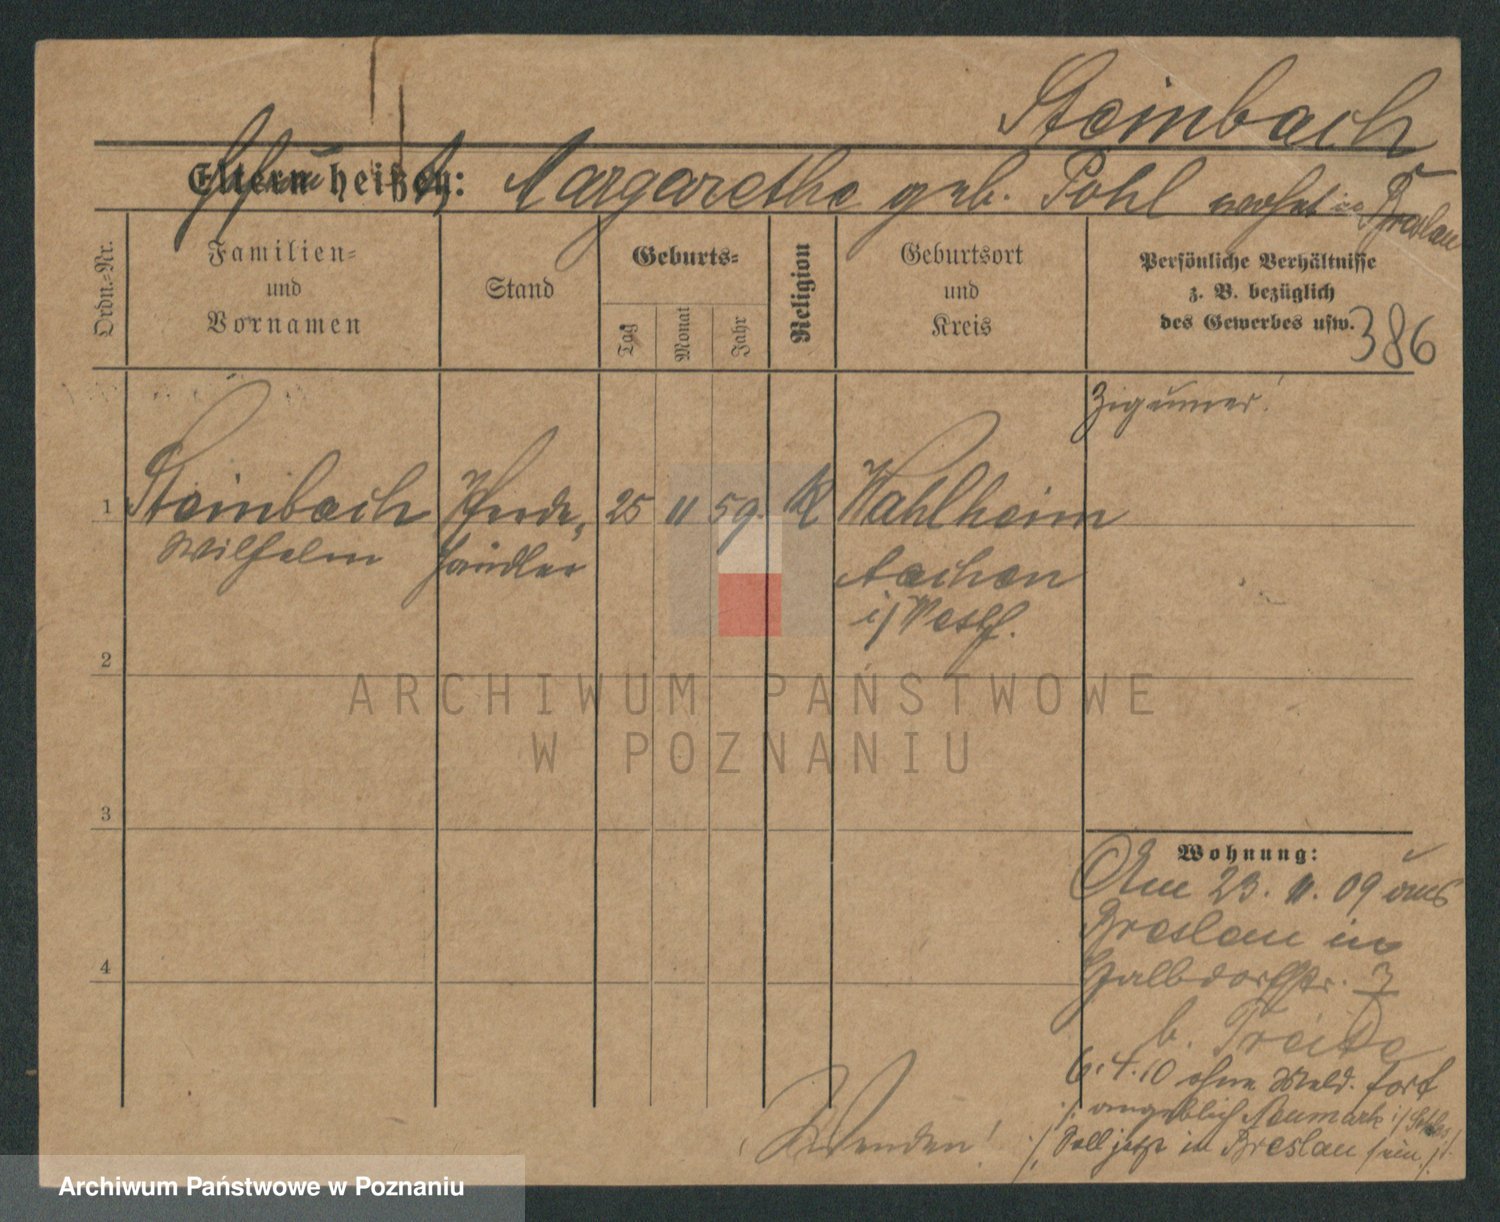 Steinbach
Eltern heißen: Margarethe geb. Pohl wohnt in Breslau
Ordn.-Nr.
Familien-
und
Vornamen
Stand
Geburts-
Tag
Monat
Jahr
Religion
Geburtsort
und
Kreis
Persönliche Verhältnisse
z. B. bezüglich
des Gewerbes usw.
386
Zigeuner!
1 Steinbach Pferde- 25 11 59. K Wahlheim
Wilhelm händler Aachen
i/ Westf.
2
ARCHIWUM PAŃSTWOWE
W POZNANIU
3
Wohnung:
Am 23. 11. 09 aus
Breslau in
Halbdorfstr. 3
b.
6.4.10 ohne Meld. fort
./. angeblich Neumark i/ Schles.
./. Soll jetzt in Breslau sein ./.
4
Wenden!
Archiwum Państwowe w Poznaniu